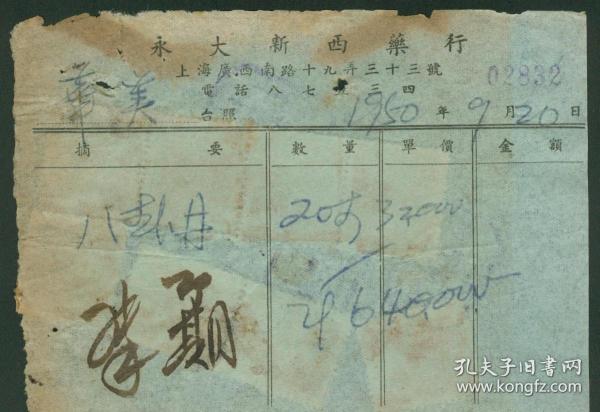 永大新西藥行
上海廣西南路十九弄三十三號
電話八七五三四
02832
華美 台照 1950年9月20日
摘要 數量 單價 金額
八卦丹 20打 32000
640000
孔夫子旧书网
www.kongfz.com